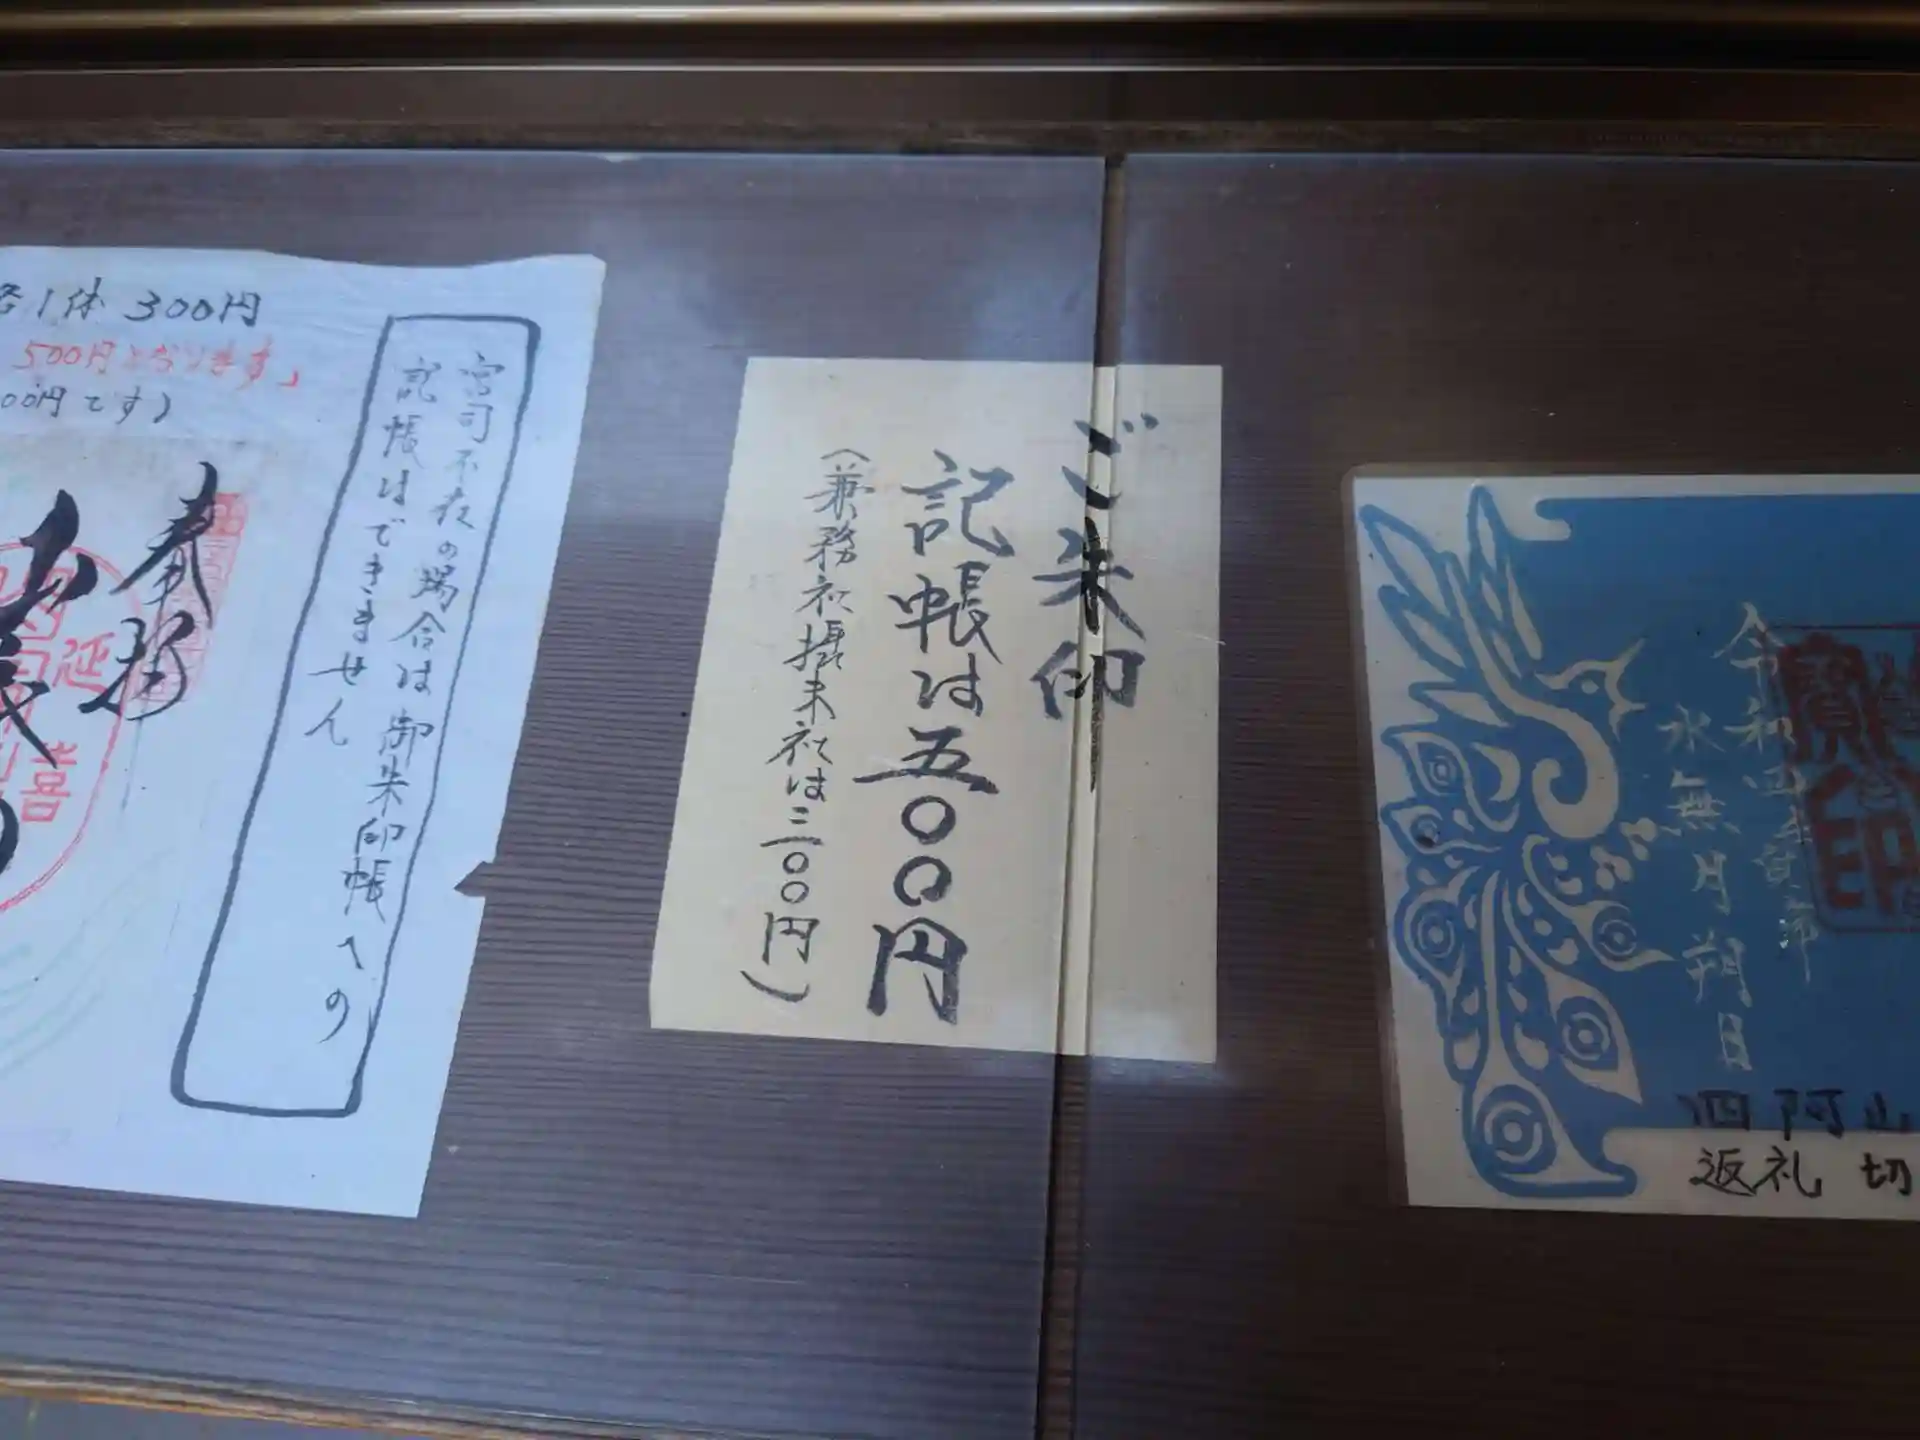 各1体 300円
500円となります」
00円です)
奉拝
宮司不在の場合は御朱印帳への
記帳はできません
ご朱印
記帳は五〇〇円
(兼務社摂末社は三〇〇円)
令和四年
水無月朔日
四阿山
返礼 切